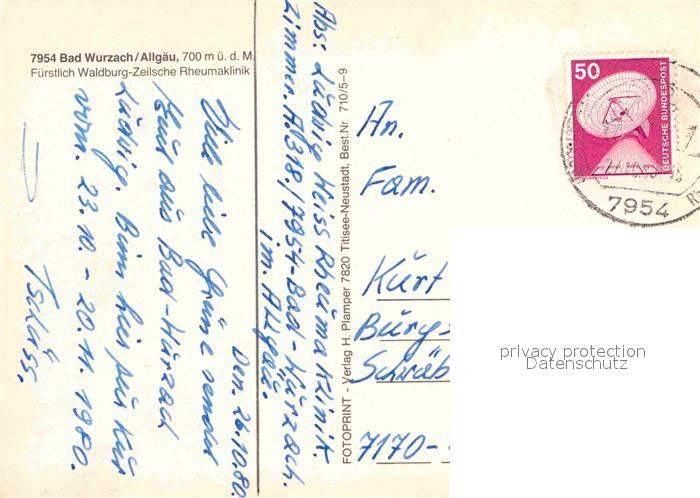 7954 Bad Wurzach/Allgäu, 700 m ü. d. M.
Fürstlich Waldburg-Zeilsche Rheumaklinik
Den. 26.10.80.
Viel liebe Grüße sendet
Euch aus Bad-Wurzach
Ludwig. Binn hier zur Kur
vom. 23.10 - 20.11.1980.
Tschüss.
Abs: Ludwig Heiss Rheuma Klinik
Zimmer. A 318/7954-Bad-Wurzach.
im. Allgäu.
FOTOPRINT - Verlag H. Plamper 7820 Titisee-Neustadt, Best.Nr 710/5-9
50
DEUTSCHE BUNDESPOST
7954
An.
Fam.
Kurt
Burgs
Schwäb
7170-
privacy protection
Datenschutz